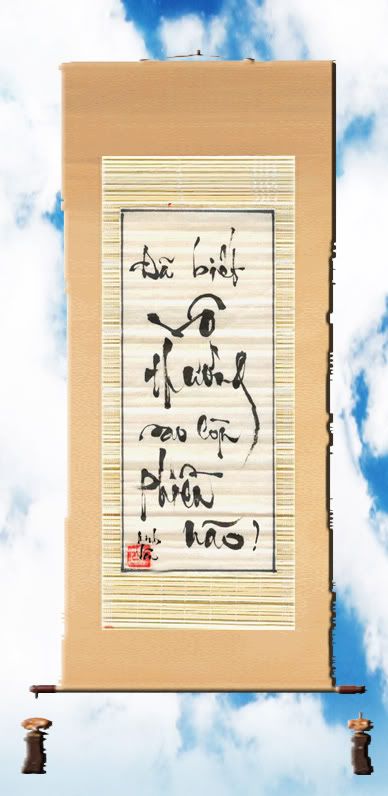 Đã biết
Vô
thường
sao còn
phiền
não?